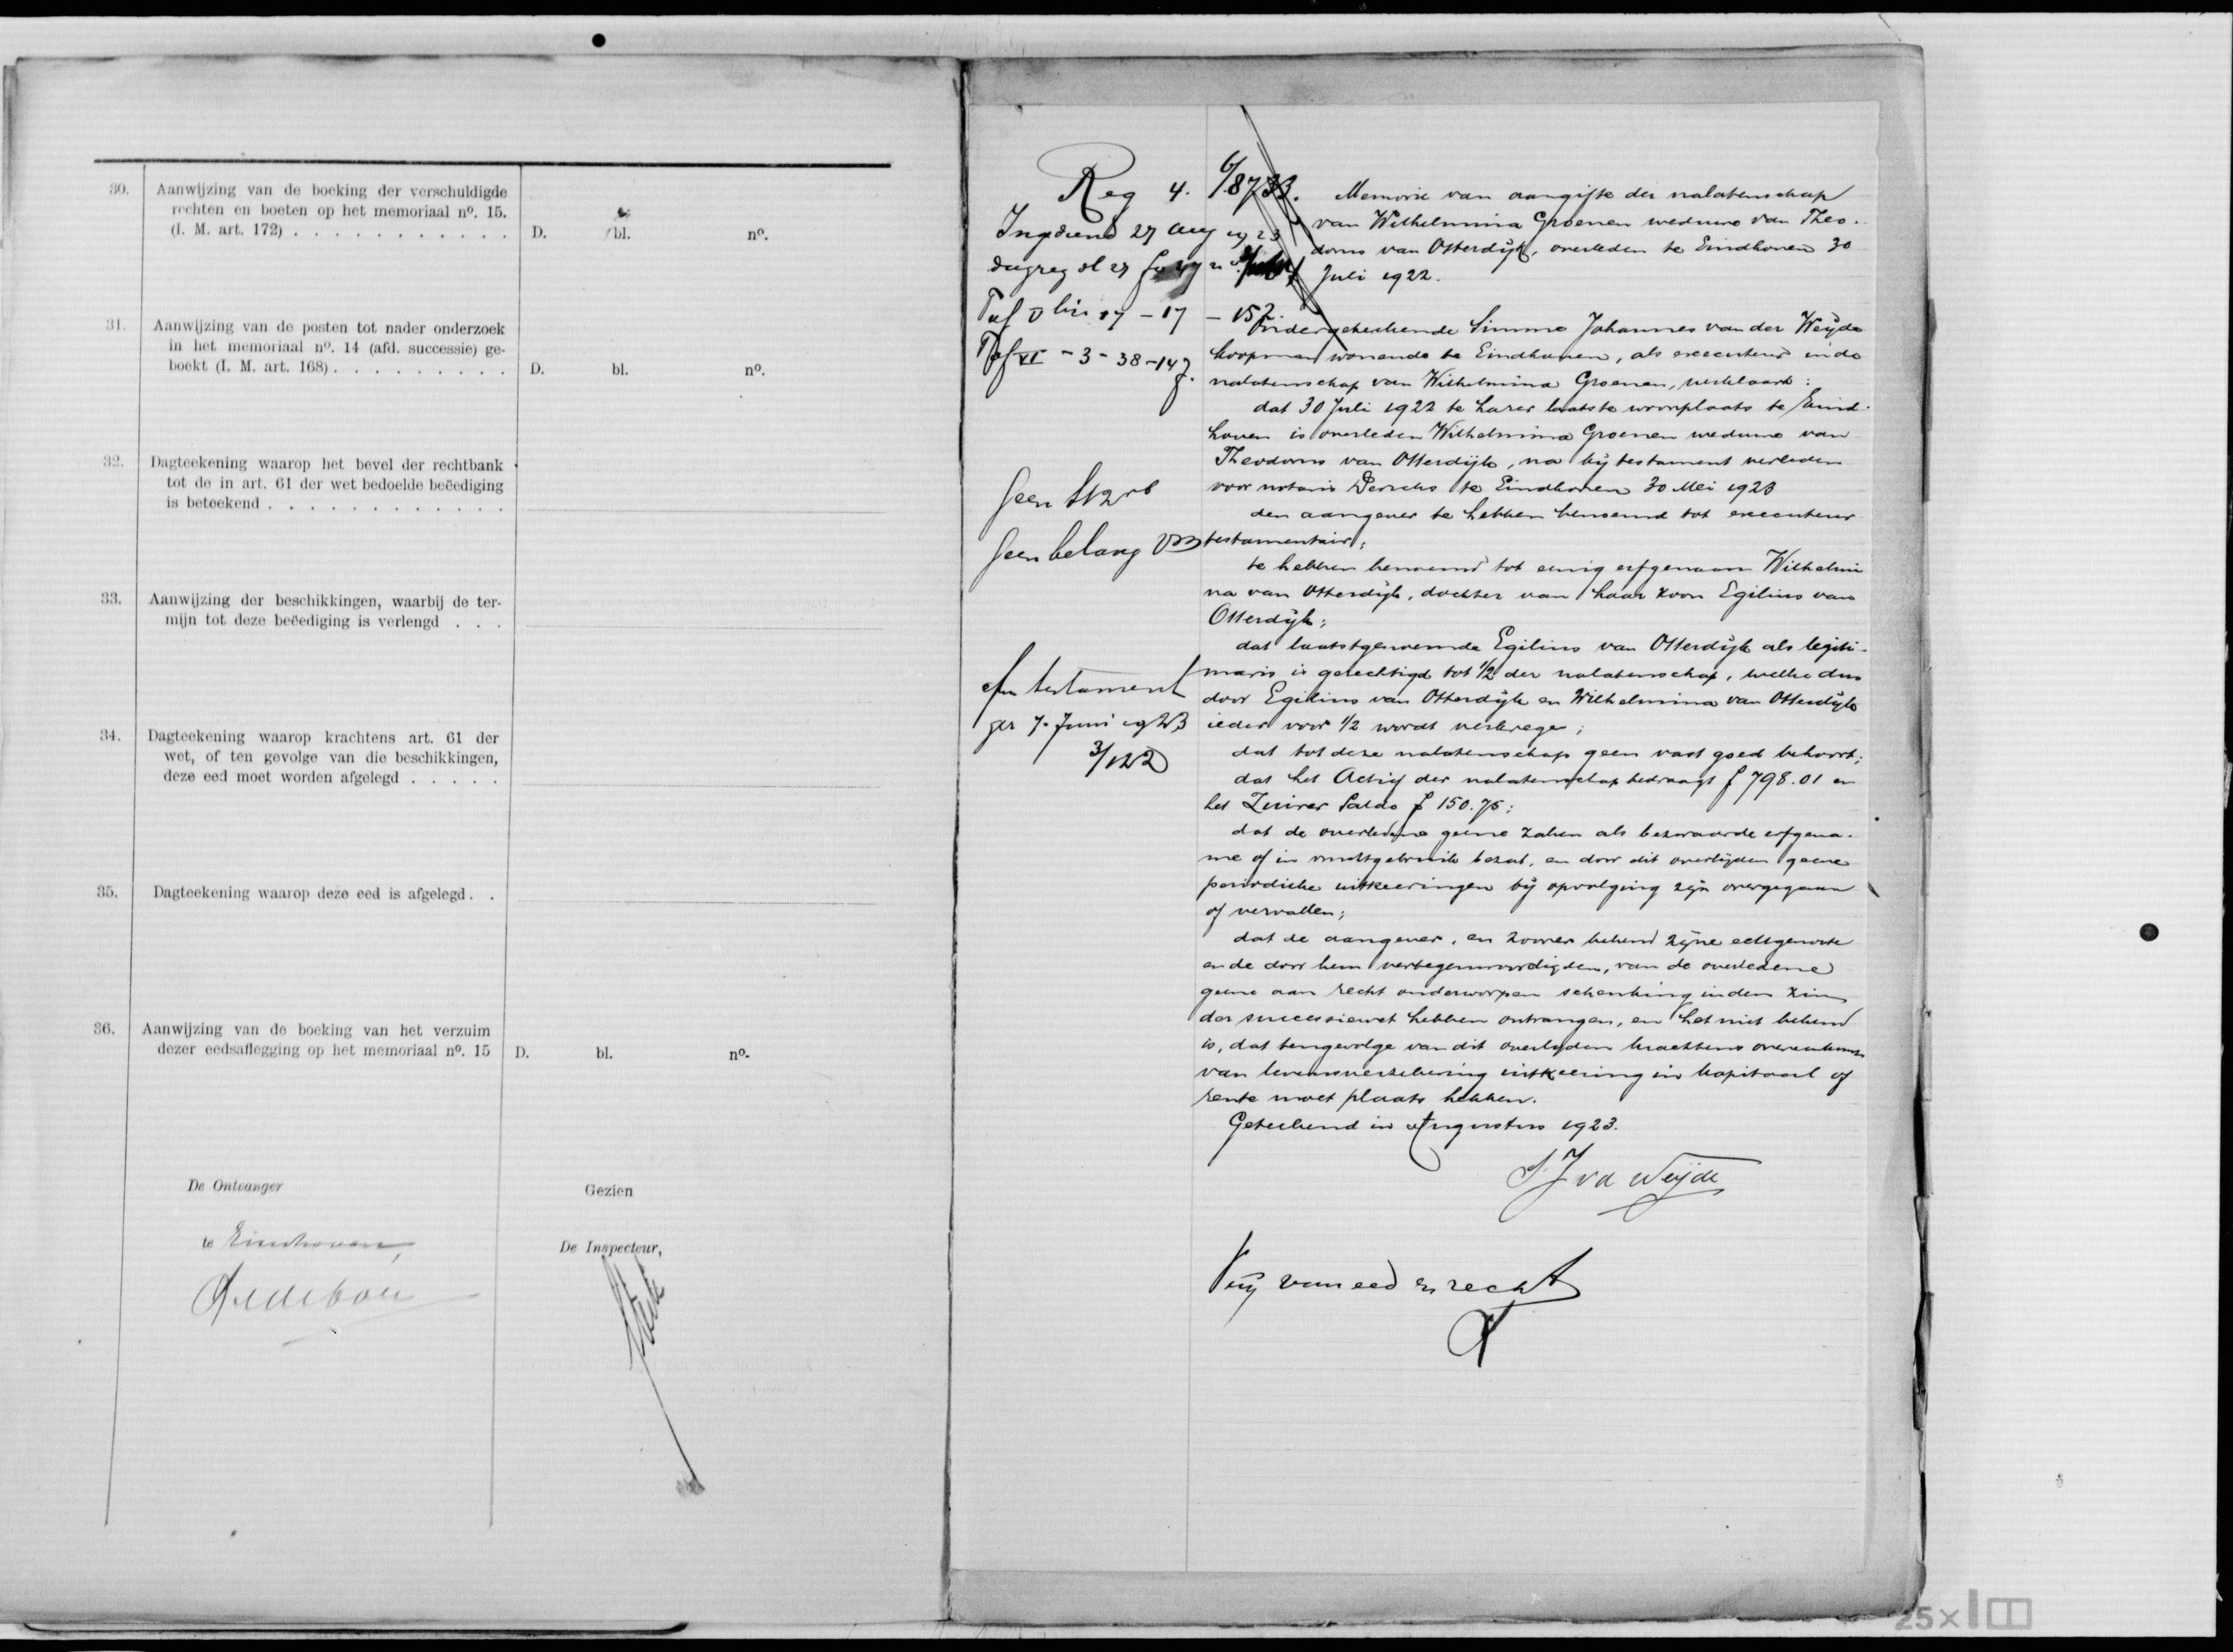 30. Aanwijzing van de boeking der verschuldigde
rechten en boeten op het memoriaal nº. 15.
(I. M. art. 172) . . . . . . . . . . . D. bl. nº.
31. Aanwijzing van de posten tot nader onderzoek
in het memoriaal nº. 14 (afd. successie) ge-
boekt (I. M. art. 168) . . . . . . . . . D. bl. nº.
32. Dagteekening waarop het bevel der rechtbank
tot de in art. 61 der wet bedoelde beëediging
is beteekend . . . . . . . . . . . .
33. Aanwijzing der beschikkingen, waarbij de ter-
mijn tot deze beëediging is verlengd . . .
34. Dagteekening waarop krachtens art. 61 der
wet, of ten gevolge van die beschikkingen,
deze eed moet worden afgelegd . . . . .
35. Dagteekening waarop deze eed is afgelegd . .
36. Aanwijzing van de boeking van het verzuim
dezer eedsaflegging op het memoriaal nº. 15 D. bl. nº.
De Ontvanger
te Eindhoven,
Gezien
De Inspecteur,
Reg 4.
Ingediend 27 Aug 1923
Taf V bis 17 - 17 - 152.
Taf VI - 3 - 38 - 147.
Geen
Geen belang
testament
ger 7. Juni 1923
3/122
Memorie van aangifte der nalatenschap
van Wilhelmina Groenen weduwe van Theo-
dorus van Otterdijk, overleden te Eindhoven 30
Juli 1922.
Ondergeteekende Simme Johannes van der Weijde
koopman wonende te Eindhoven, als executeur in de
nalatenschap van Wilhelmina Groenen, verklaart:
dat 30 Juli 1922 te harer laatste woonplaats te Eind-
hoven is overleden Wilhelmina Groenen weduwe van
Theodorus van Otterdijk, na bij testament verleden
voor notaris te Eindhoven 30 Mei 1923
den aangever te hebben benoemd tot executeur
testamentair;
te hebben benoemd tot eenig erfgenaam Wilhelmi
na van Otterdijk, dochter van haar zoon Egilius van
Otterdijk;
dat laatstgenoemde Egilius van Otterdijk als legiti-
maris is gerechtigd tot 1/2 der nalatenschap, welke dus
door Egilius van Otterdijk en Wilhelmina van Otterdijk
ieder voor 1/2 wordt verkregen;
dat tot deze nalatenschap geen vast goed behoort;
dat het Actief der nalatenschap bedraagt f 798.01 en
het Zuiver Saldo f 150.75;
dat de overledene geene zaken als bezwaarde erfgena-
me of in vruchtgebruik bezat, en door dit overlijden geene
periodieke uitkeeringen bij opvolging zijn overgegaan
of vervallen;
dat de aangever, en zoover bekend zijne echtgenoote
en de door hem vertegenwoordigden, van de overledene
geene aan recht onderworpen schenking in den zin
der successiewet hebben ontvangen, en het niet bekend
is, dat tengevolge van dit overlijden krachtens overeenkomst
van levensverzekering uitkeering in kapitaal of
rente moet plaats hebben.
Geteekend in Augustus 1923.
S J vd Weijde
Vrij van eed en recht
25x